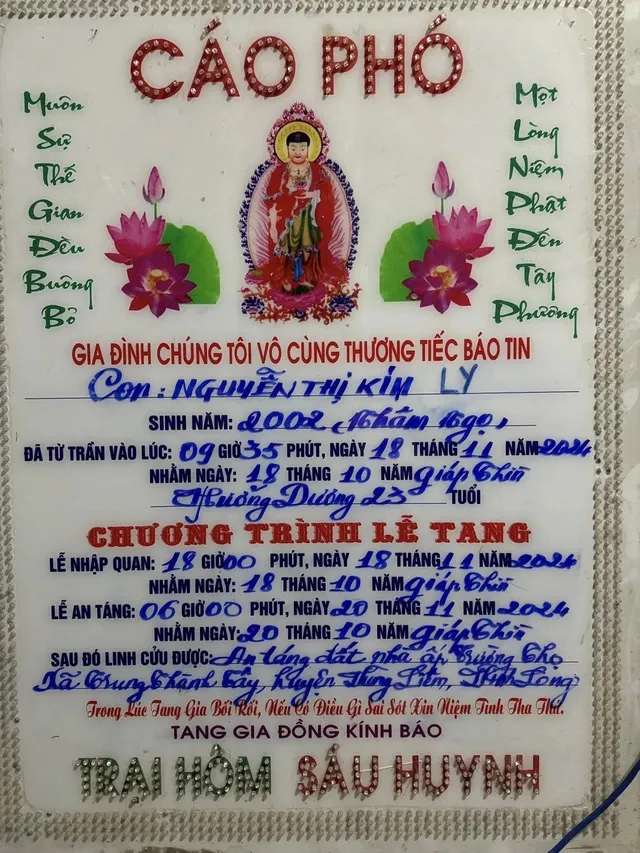 CÁO PHÓ
Muôn
Sự
Thế
Gian
Đều
Buông
Bỏ
Một
Lòng
Niệm
Phật
Đến
Tây
Phương
GIA ĐÌNH CHÚNG TÔI VÔ CÙNG THƯƠNG TIẾC BÁO TIN
Con: NGUYỄN THỊ KIM LY
SINH NĂM: 2002 (Nhâm Ngọ)
ĐÃ TỪ TRẦN VÀO LÚC: 09 GIỜ 35 PHÚT, NGÀY 18 THÁNG 11 NĂM 2024
NHẰM NGÀY: 18 THÁNG 10 NĂM Giáp Thìn
Hưởng Dương 23 TUỔI
CHƯƠNG TRÌNH LỄ TANG
LỄ NHẬP QUAN: 18 GIỜ 00 PHÚT, NGÀY 18 THÁNG 11 NĂM 2024
NHẰM NGÀY: 18 THÁNG 10 NĂM Giáp Thìn
LỄ AN TÁNG: 06 GIỜ 00 PHÚT, NGÀY 20 THÁNG 11 NĂM 2024
NHẰM NGÀY: 20 THÁNG 10 NĂM Giáp Thìn
SAU ĐÓ LINH CỬU ĐƯỢC: An táng đất nhà ấp Trường Thọ
Xã Trung Thành Tây, huyện Vũng Liêm, Vĩnh Long
Trong Lúc Tang Gia Bối Rối, Nếu Có Điều Gì Sai Sót Xin Niệm Tình Tha Thứ.
TANG GIA ĐỒNG KÍNH BÁO
TRẠI HÒM SÁU HUYNH